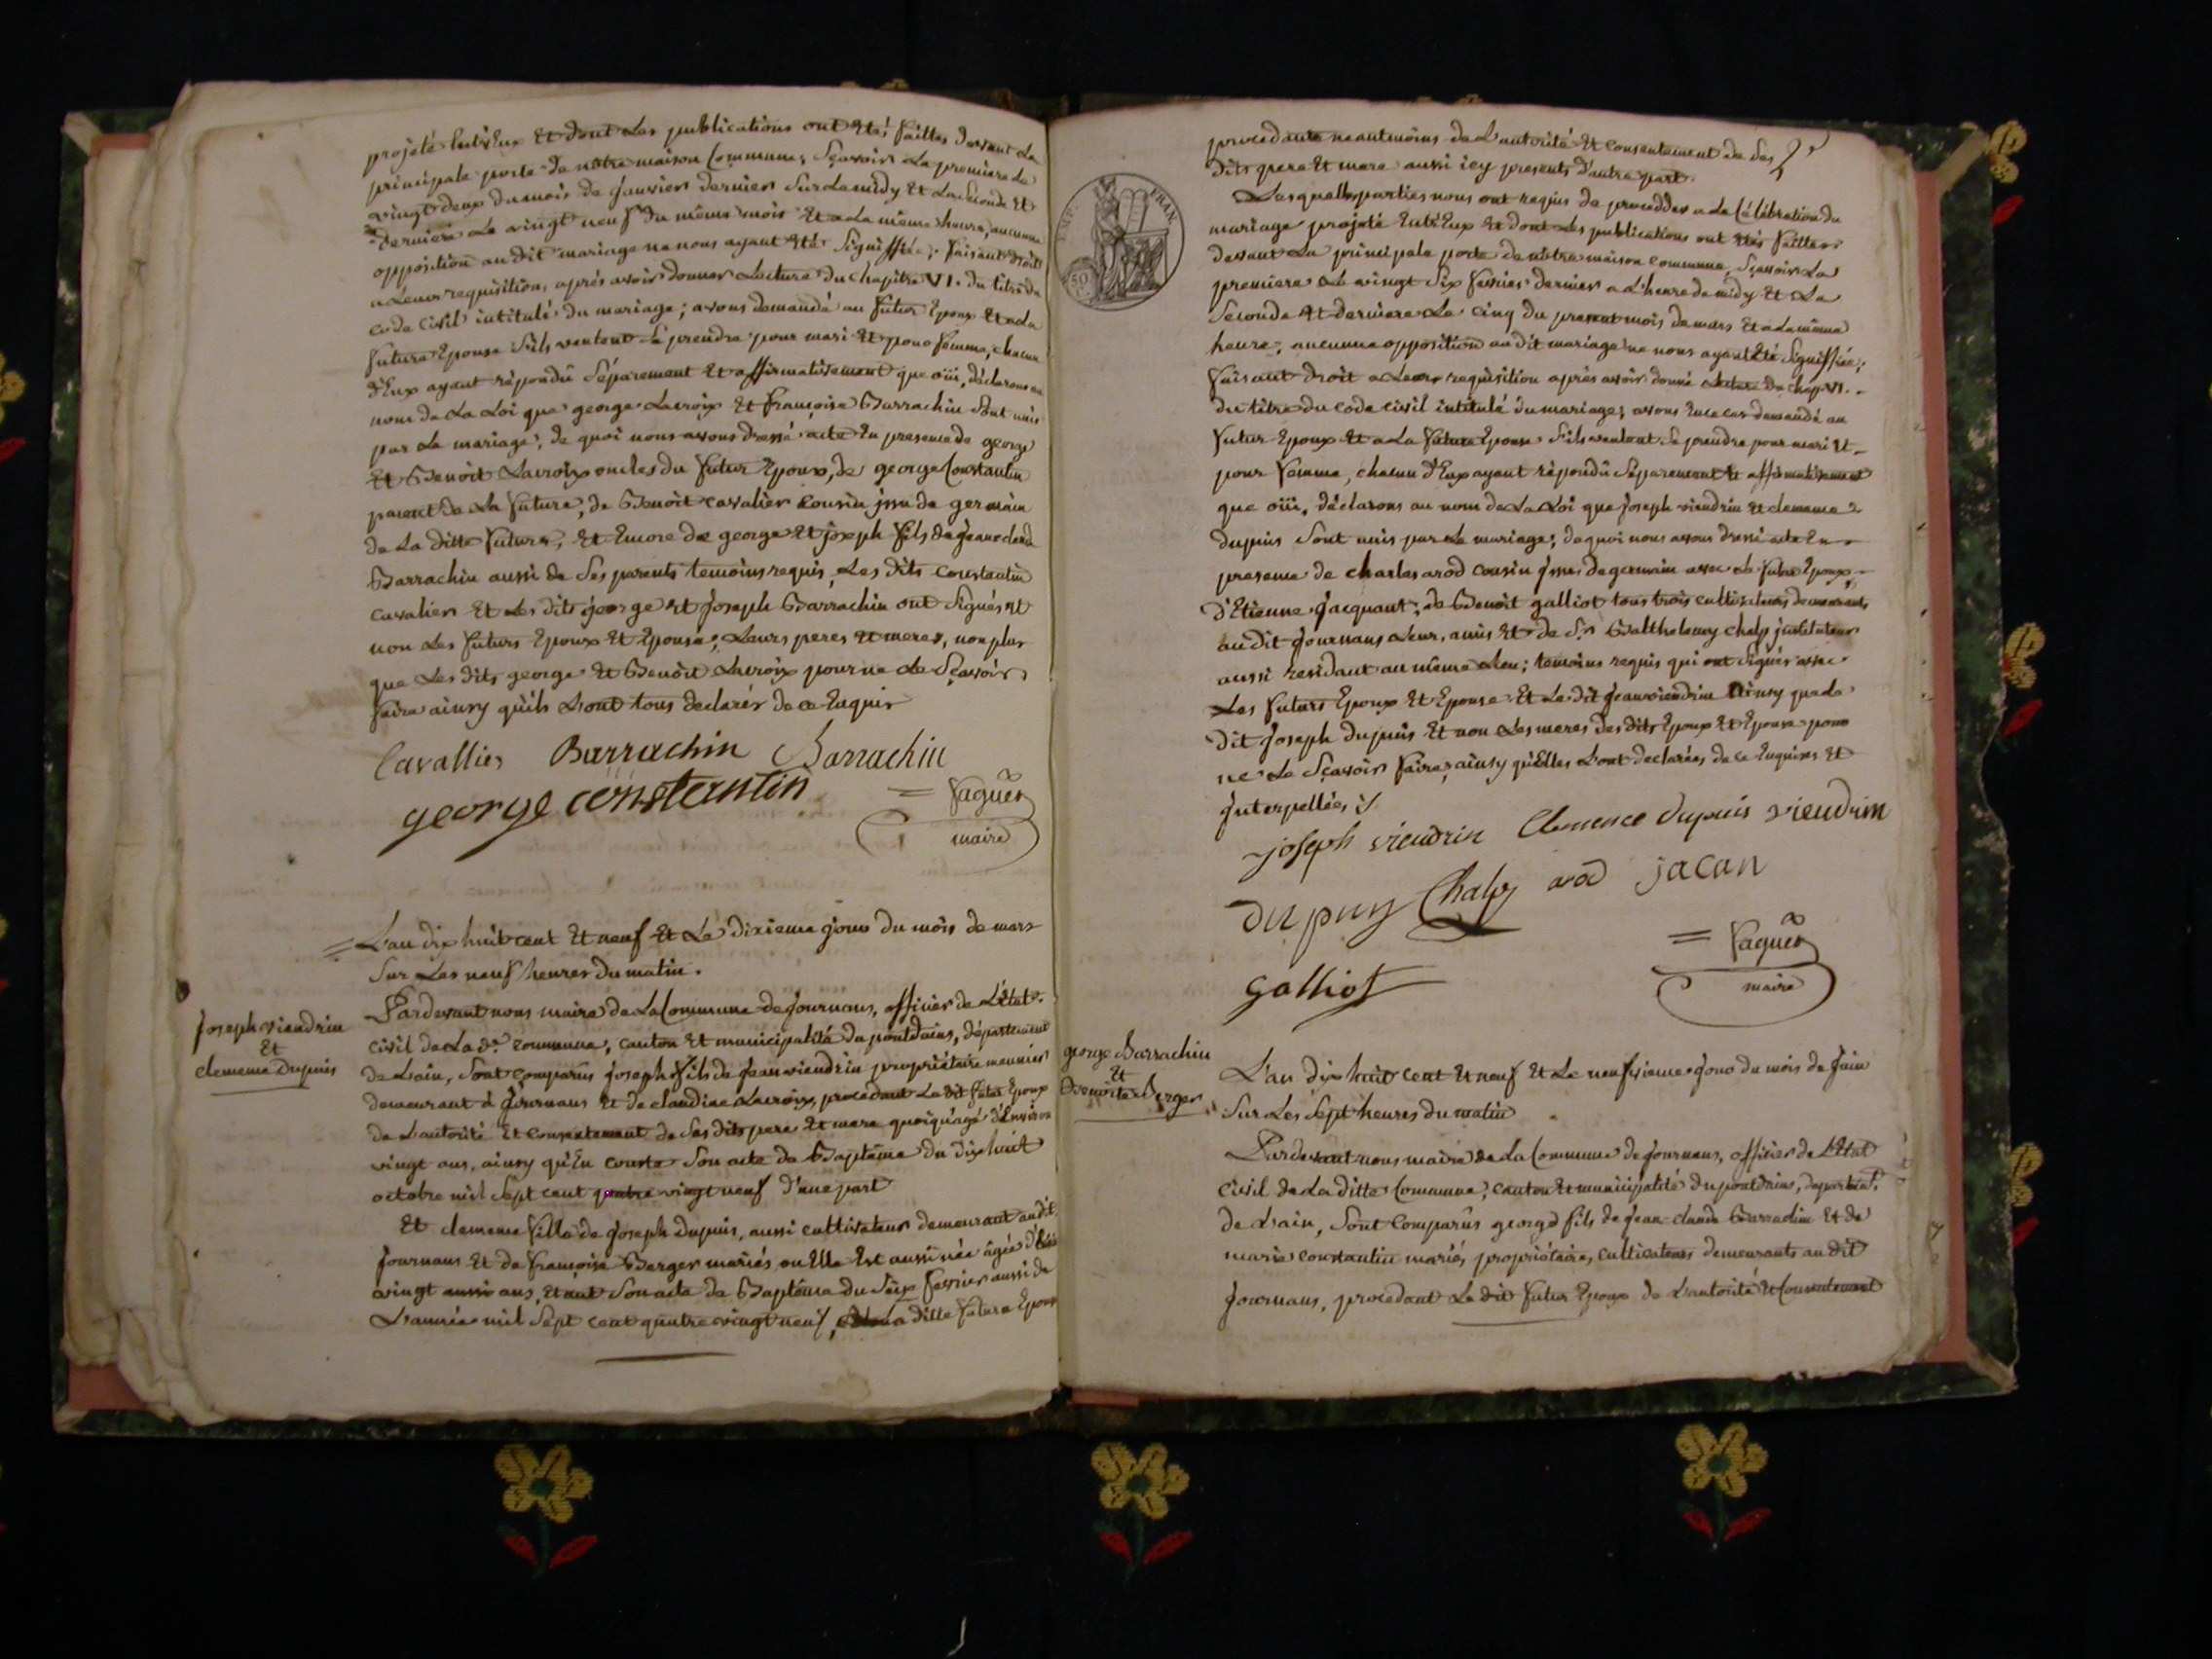 projeté Entr'Eux Et dont Les publications ont Eté faittes devant La
principale porte de nôtre maison Commune, Sçavoir La premiere Le
vingt deux du mois de janvier dernier Sur Le midy Et La Seconde Et
derniere Le vingt neuf du même mois Et a La même heure, aucunne
opposition au dit mariage ne nous ayant Eté Signiffiée; faisant droit
a Leur requisition, aprés avoir donner Lecture du Chapitre VI. du titre du
code Civil intitulé du mariage; avons demandé au futur Epoux Et a La
future Epouse S'ils veulent Se prendre pour mari Et pour femme, chacun
d'Eux ayant répondû Séparement Et affirmativement que oüi, déclarons au
nom de La Loi que george Lacroix Et françoise Barrachin Sont unis
par Le mariage; de quoi nous avons dressé acte En presence de george
Et Benoit Lacroix oncles du futur Epoux, de george Constantin
parent de La future, de Benoit cavalier cousin jssu de germain
de La ditte future, Et Encore de george Et joseph fils de jean claude
Barrachin aussi de Ses parents temoins requis, Les dits constantin
cavalier Et Les dits george Et joseph Barrachin ont Signés Et
non Les futurs Epoux Et Epouse, Leurs peres Et meres, non plus
que Les dits george Et Benoit Lacroix pour ne Le Sçavoir
faire ainsy qu'ils L'ont tous declarés de ce Enquis
Cavallier Barrachin Barrachin
george constantin = faguer
maire
= L'an dix huit cent Et neuf Et Le dixieme jour du mois de mars
Sur Les neuf heures du matin.
joseph viendrin
Et
clemence Dupuis
Pardevant nous maire de La Commune de journans, officier de L'état
civil de La de. commune, canton Et municipalité du pontdains, département
de L'ain, Sont comparûs joseph fils de jean viendrin propriétaire meunier
demeurant à journans Et de claudine Lacroix, procedant Le dit futur Epoux
de L'autorité Et consentement de Ses dits pere Et mere quoiqu'agé d'Environ
vingt ans, ainsy qu'En conste Son acte de Baptême du dix huit
octobre mil Sept cent quatre vingt neuf d'une part
Et clemence fille de joseph Dupuis, aussi cultivateur demeurant au dit
journans Et de françoise Berger mariés ou Elle Est aussi née âgée
vingt aussi ans, Etant Son acte de Baptême du Six fevrier aussi de
L'année mil Sept cent quatre vingt neuf, La ditte future Epouse
2e
procedante neantmoins de L'autorité Et consentement de Ses
dits pere Et mere aussi icy presents d'autre part.
EMP. FRAN.
50
Lesquelles parties nous ont requis de procedder a La Célébration du
mariage projeté Entr'Eux Et dont Les publications ont Etés faittes
devant La principale porte de nôtre maison commune, Sçavoir La
premiere Le vingt Six fevrier dernier a L'heure de midy Et La
Seconde Et derniere Le cinq du present mois de mars Et a La même
heure; aucunne opposition au dit mariage ne nous ayant Eté Signiffiée;
faisant droit a Leur requisition aprés avoir donné Lecture du chap. VI.
du titre du code civil intitulé du mariage; avons En ce cas demandé au
futur Epoux Et a La future Epouse S'ils veulent Se prendre pour mari Et
pour femme, chacun d'Eux ayant répondû Séparement Et affirmativement
que oüi, déclarons au nom de La Loi que joseph viendrin Et clemence
dupuis Sont unis par Le mariage; de quoi nous avons dressé acte En
presence de charles arod cousin jssus de germain avec Le futur Epoux,
d'Etienne jacquant; de Benoit galliot tous trois cultivateurs demeurants
au dit journans Leur amis Et de Sr. Balthelemy chalp jnstituteur
aussi residant au même Lieu; temoins requis qui ont Signés avec
Les futurs Epoux Et Epouse Et Le dit jean viendrin Ainsy que Le
dit joseph dupuis Et non Les meres des dits Epoux Et Epouse pour
ne Le Sçavoir faire, ainsy qu'Elles L'ont declarées de ce Enquises Et
jnterpellées ./.
joseph viendrin Clemence dupuis viendrin
Dupuy Chalp arod jacan
= faguer
maire
galliot
george Barrachin
Et
Benoite Berger
L'an dix huit cent Et neuf Et Le neufvieme jour du mois de juin
Sur Les Sept heures du matin
Pardevant nous maire de La Commune de journans, officier de L'Etat
civil de La ditte Commune, canton Et municipalité du pontdains, departemt.
de L'ain, Sont Comparûs george fils de jean claude Barrachin Et de
marie constantin mariés, propriétaires cultivateurs demeurants au dit
journans, procedant Le dit futur Epoux de L'autorité Et Consentement